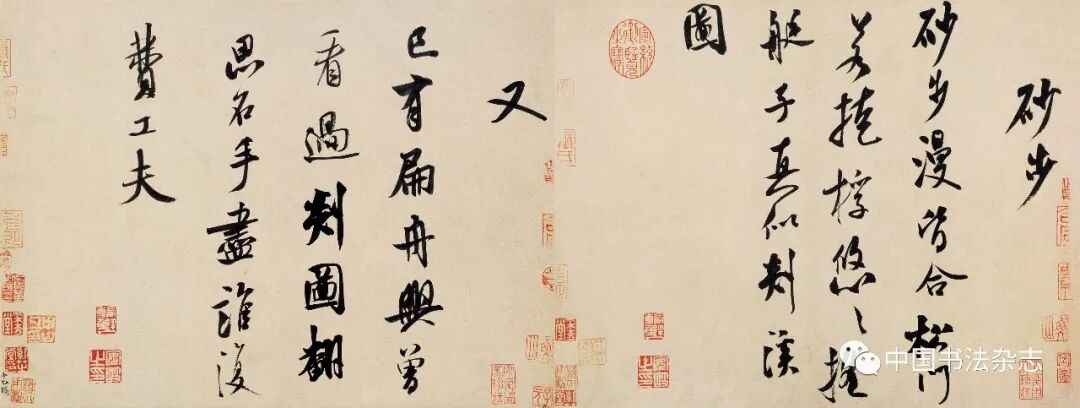 砂步
砂步漫皆合松門
若掩桴悠〻搖
艇子真似剡溪
圖
又
已有扁舟興曾
看過剡圖翻
思名手盡誰復
費工夫
中国书法杂志